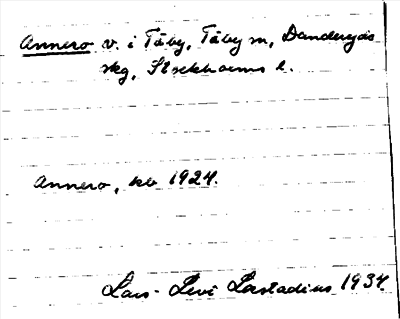 Annero v. i Täby, Täby sn, Danderyds
skg, Stockholms l.
Annero, kb 1924.
Lars-Levi Læstadius 1934.